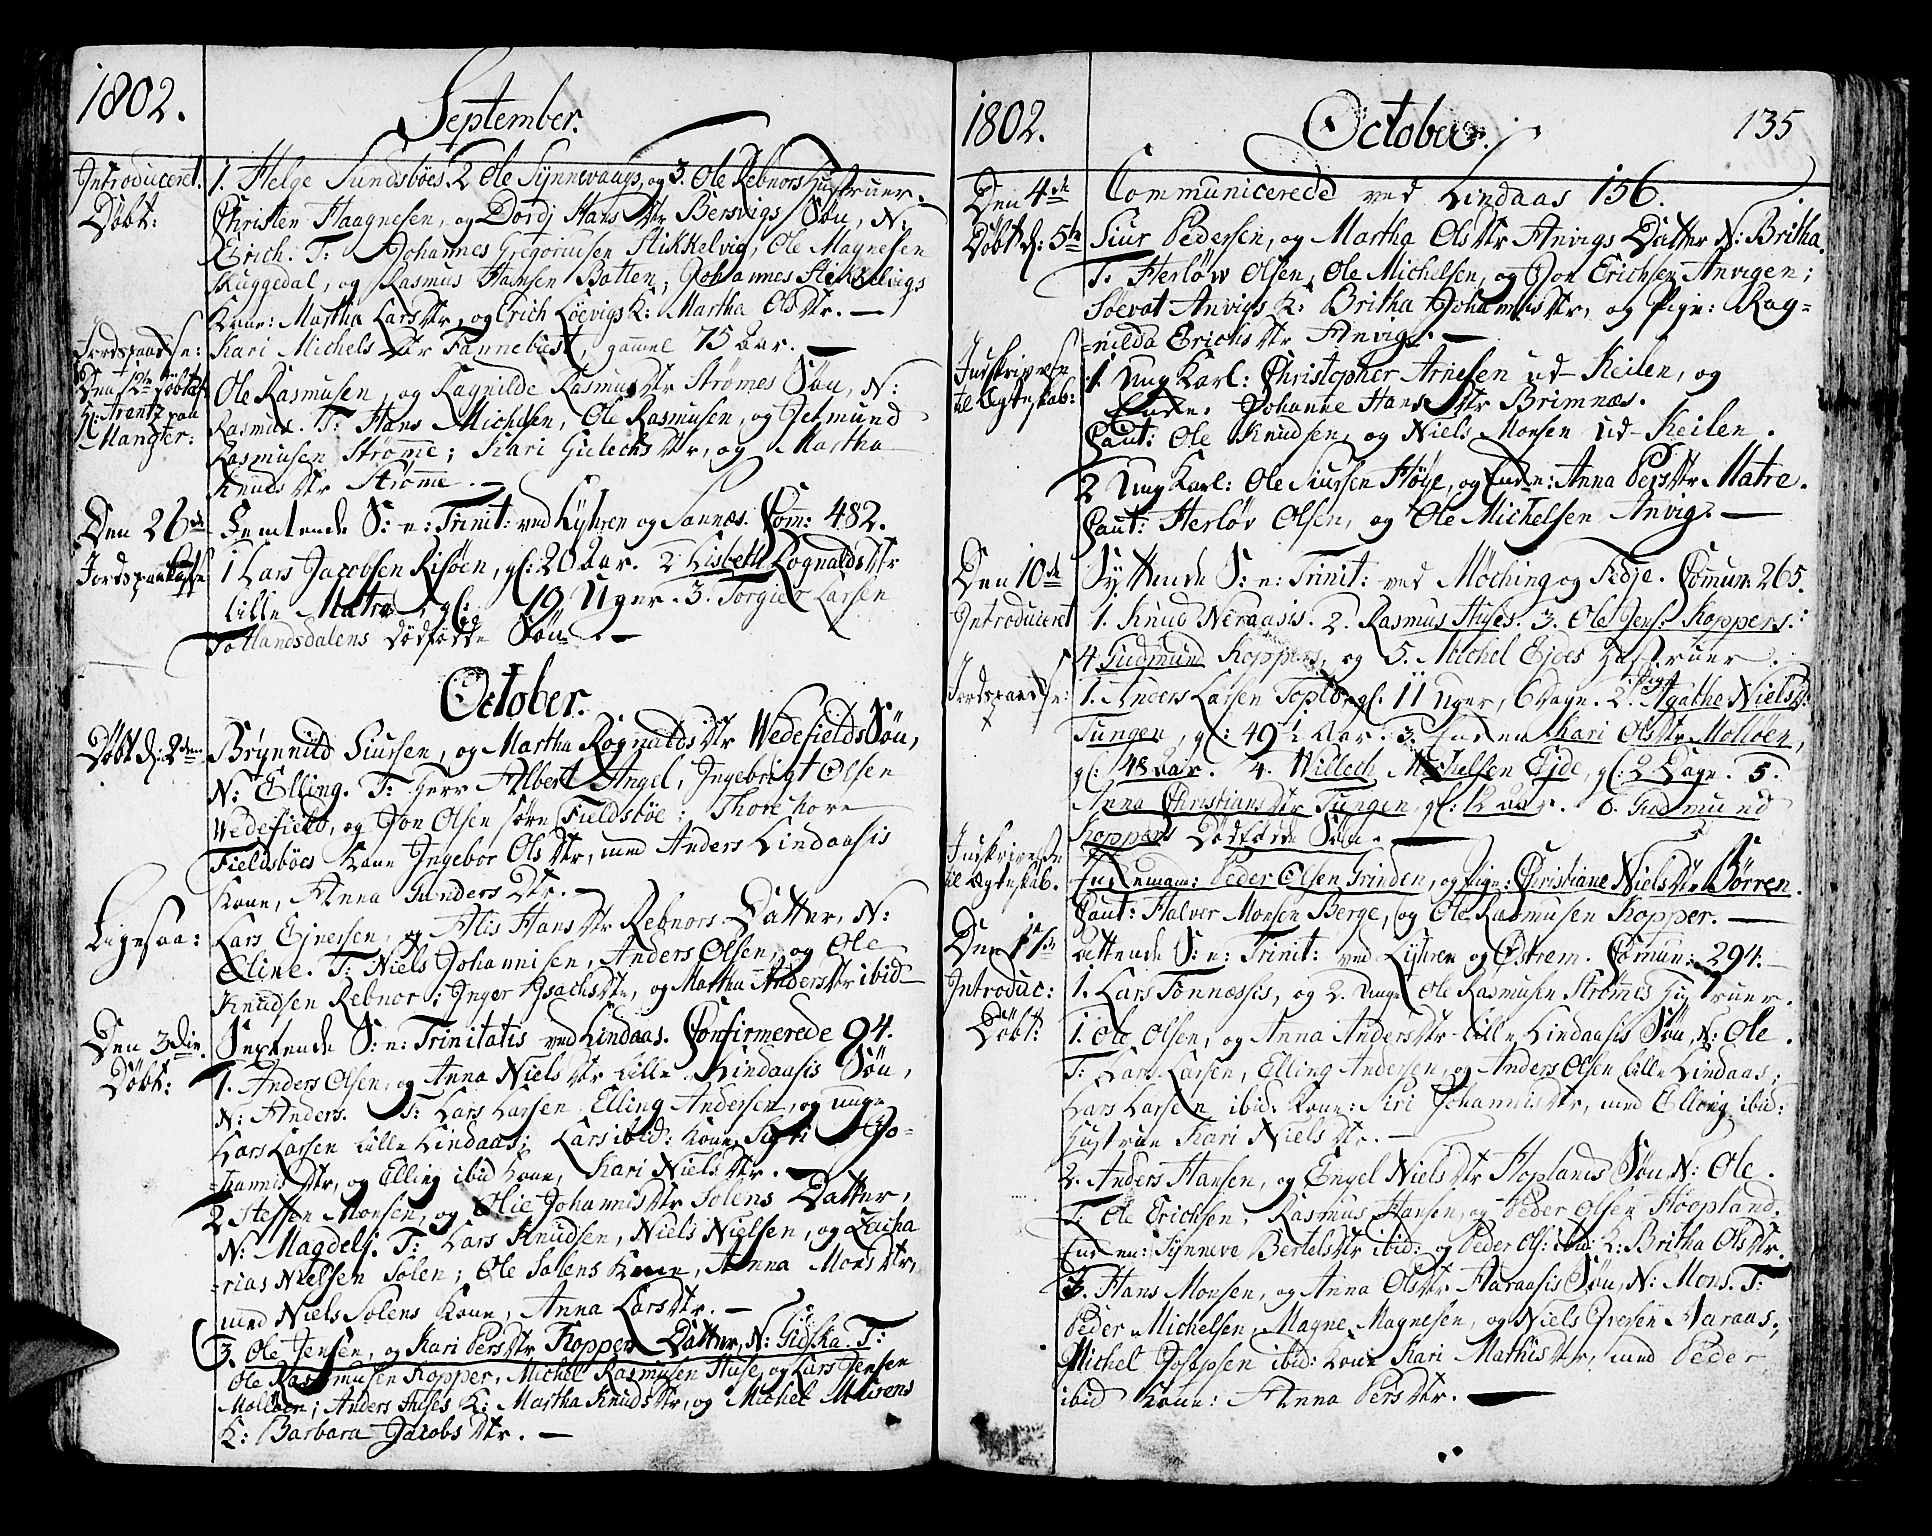 1802.
September.
Introduceret. 1. Helge Sundsböes. 2 Ole Synnevaags, og 3. Ole Rebnors Hustruer.
Döbt: Christen Haagnesen, og Dordj Hans Dtr Bersvigs Sön, N:
Erich. T: Johannes Gregoriusen Stikkelvig, Ole Magnesen
Skuggedal, og Rasmus Hansen Botten; Johannes Stikkelvigs
Kone: Martha Lars Dtr, og Erich Löevigs K: Martha Ols Dtr. —
Jordspaadse: Kari Michels Dtr Fannebust, gammel 75 Aar. —
Ole Rasmusen, og Ragnilde Rasmus Dtr Strömes Sön, N:
Rasmus. T: Hans Michelsen, Ole Rasmusen, og Jetmund
Rasmusen Strömme; Kari Gulechs Dtr, og Martha
Knuds Dtr Strömme. —
Mangter:
Den 26de Femtende S: e: Trinit: ved Lyhren og Sannæs. Com: 482.
Jordspaadse 1 Lars Jacobsen Risöen, gl: 20 Aar. 2 Lisbeth Rognalds Dtr
lille Matre, gl: 19 Uger. 3. Torgier Larsen
Tollandsdalens Dödfödde Sön. —
October.
Döbt d: 2den Brynnild Siursen, og Martha Rognalds Dtr Wedefields Sön,
N: Elling. T: Herr Albert Angel, Ingebrigt Olsen
Wedefield, og Jon Olsen söre Fieldsböe: Thore nore
Fieldsböes Kone Ingebor Ols Dtr, med Anders Lindaasis
Kone, Anna Gunders Dtr. —
Ligesaa: Lars Ejnersen, og Alis Hans Dtr Rebnors Datter, N:
Eline. T: Niels Johannisen, Anders Olsen, og Ole
Knudsen Rebnor; Inger Isachs Dtr, og Martha Anders Dtr ibid
Den 3die Sextende S: e: Trinitatis ved Lindaas. Confirmerede 94.
Döbt: 1. Anders Olsen, og Anna Niels Dtr lille Lindaasis Sön,
N: Anders. T: Lars Larsen, Elling Andersen, og unge
Lars Larsen lille Lindaas; Lars ibid: Kone Sigri Jo-
=hannis Dtr, og Elling ibid Kone, Kari Niels Dtr. —
2 Steffen Monsen, og Olie Johannis Dtr Solens Datter,
N: Magdeli. T: Lars Knudsen, Niels Nielsen, og Zacha
=rias Nielsen Solen; Ole Solens Kone, Anna Mons Dtr,
med Niels Solens Kone, Anna Lars Dtr. —
3. Ole Jensen, og Kari Pers Dtr Kopper Datter, N: Gidska. T:
Ole Rasmusen Kopper, Michel Rasmusen Huse, og Lars Jensen
Molloen; Anders Huses K: Martha Knuds Dtr, og Michel
K: Barbara Jacobs Dtr. —
1802.
October.
135
Den 4de Communicerede ved Lindaas 156.
Döbt d: 5te Siur Pedersen, og Martha Ols Dtr Anvigs Datter N: Britha.
T: Herlöv Olsen, Ole Michelsen, og Jon Erichsen Anvigen;
Soevat Anvigs K: Britha Johannis Dtr, og Pige: Rag=
=nilda Erichs Dtr Anvig. —
Indskrivelse 1. Ung Karl: Christopher Arnesen ud-Keilen, og
til Ægteskab: Enke. Johanne Hans Dtr Brimnæs.
Caut: Ole Knudsen, og Niels Monsen ud-Keilen.
2 Ung Karl: Ole Siursen Höye, og Enke: Anna Pers Dtr Matre.
Caut: Herlöv Olsen, og Ole Michelsen Anvig. —
Den 10de Syttende S: e: Trinit: ved Möching og Fedje. Comun: 265.
Introduceret 1. Knud Neraasis. 2. Rasmus Huses. 3. Ole Jens: Koppers.
4 Gudmund Koppers, og 5. Michel Ejdes Hustruer.
Jordspaadse: 1. Anders Larsen gl: 11 Uger, 6 Dage. 2. Pige Agathe Niels D:
Tungen, gl: 49½ Aar. 3. Enken Kari Ols Dtr Molloen,
gl: 48 Aar. 4. Willech Michelsen Ejde, gl: 2 Dage. 5.
Anna Christians Dtr Tungen, gl: 12 Aar. 6. Gudmund
Koppers Dödfödde Sön. —
Indskrivelse
til Ægteskab. Enkemand: Peder Olsen Grinden, og Pige: Christiane Niels Dtr Börren.
Caut: Halver Monsen Berge, og Ole Rasmusen Kopper. —
Den 17de Attende S: e: Trinit: ved Lyhren og Östrem. Comun: 294. —
Introduc: 1. Lars Tonnæssis, og 2. unge Ole Rasmusen Strömes Hustruer.
Döbt: 1. Ole Olsen, og Anna Anders Dtr lille Lindaasis Sön, N: Ole.
T: Lars Larsen, Elling Andersen, og Anders Olsen lille Lindaas;
Lars Larsen ibid: Kone: Siri Johannis Dtr, med Elling ibid:
Hustrue Kari Niels Dtr. —
2. Anders Hansen, og Engel Niels Dtr Hoplands Sön N: Ole.
T: Ole Erichsen, Rasmus Hansen, og Peder Olsen Hoopland.
Enken: Synneve Bertels Dtr ibid: og Peder Ols: ibid: K: Britha Ols Dtr.
3. Hans Monsen, og Anna Ols Dtr Aaraasis Sön, N: Mons. T:
Peder Michelsen, Magne Magnesen, og Niels Iversen Aaraas,
Michel Josepsen ibid: Kone Kari Mathis Dtr, med Peder
ibid Kone: Anna Pers Dtr. —